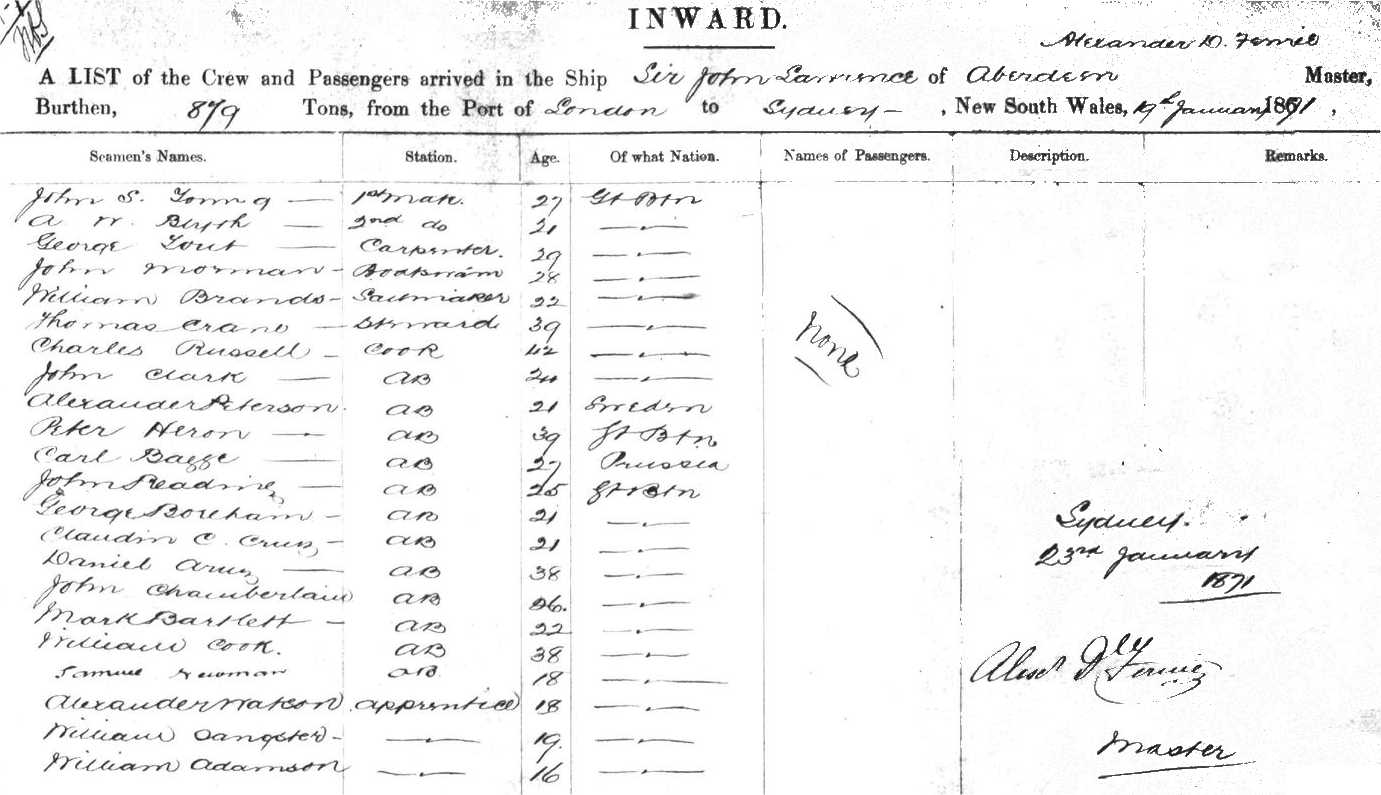 INWARD.
Alexander D. Fernie
A LIST of the Crew and Passengers arrived in the Ship Sir John Lawrence of Aberdeen Master,
Burthen, 879 Tons, from the Port of London to Sydney — , New South Wales, 19th January 1871 ,
Seamen's Names. Station. Age. Of what Nation. Names of Passengers. Description. Remarks.
John S. Young — 1st Mate. 27 Gt Btn
A W. Blyth — 2nd do 21 — " —
George Tout — Carpenter. 29 — " —
John Morman - Boatswain 28 — " —
William Brands - Sailmaker 22 — " —
Thomas Crane — Steward 39 — " —
Charles Russell - Cook 42 — " —
None
John Clark — AB 24 — " —
Alexander Peterson. AB 21 Sweden
Peter Heron — AB 39 Gt Btn
Carl Bagge — AB 27 Prussia
John Reading — AB 25 Gt Btn
George Boreham - AB 21 — " —
Claudin C. - AB 21 — " —
Daniel — AB 38 — " —
John Chamberlain AB 26. — " —
Mark Bartlett - AB 22 — " —
William Cook. AB 38 — " —
Samuel Newman AB 18 — " —
Alexander Watson Apprentice 18 — " —
William Sangster - — " — 19. — " —
William Adamson — " — 16 — " —
Sydney.
23rd January
1871
Alexr Fernie
Master